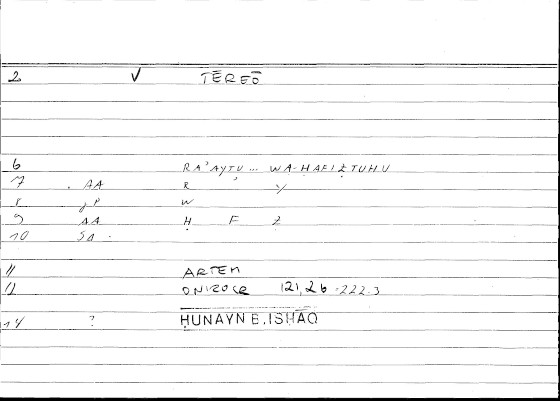 2 V TĒREŌ
6 RA'AYTU... WA-HAFIẒTUHU
7 . AA R Y
8 JP W
9 AA Ḥ F Ẓ
10 SA .
11 ARTEM
12 ONIROCR 121,26 = 222.3
14 ? ḤUNAYN B. ISḤĀQ